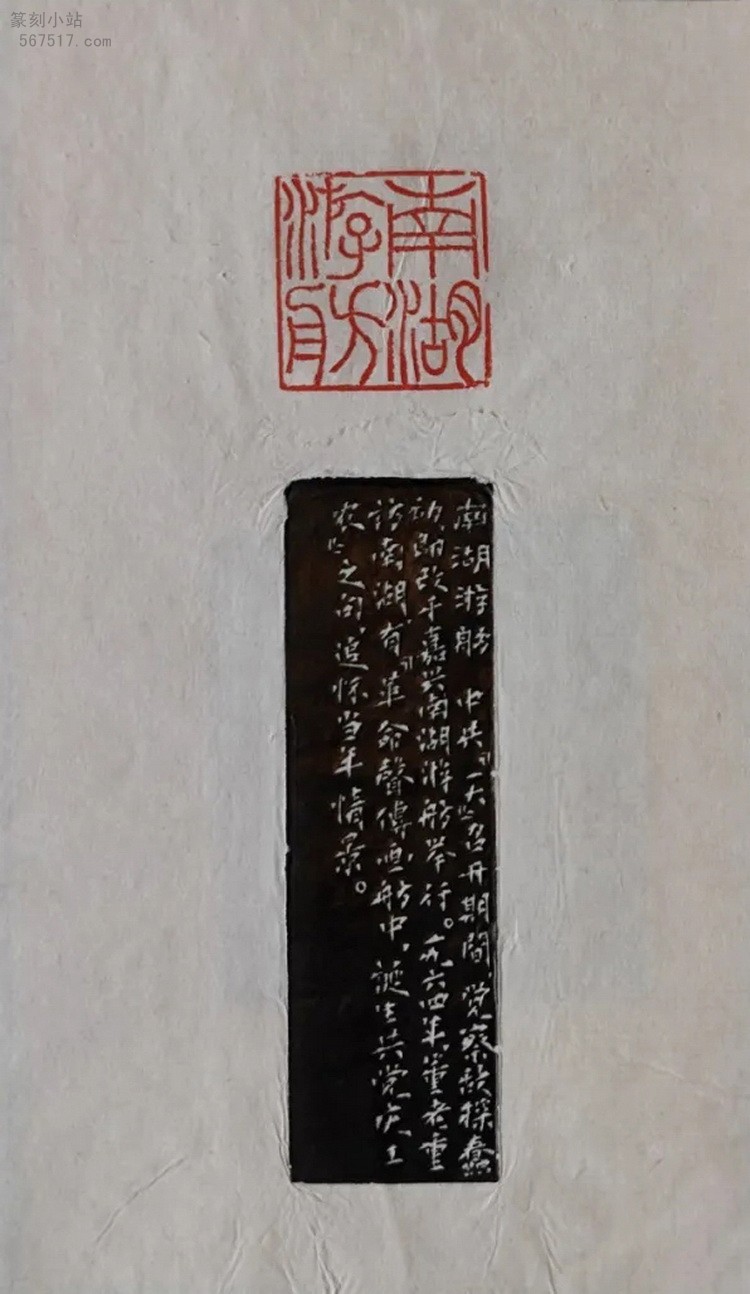 篆刻小站
567517.com
南湖
游舫
南湖游舫 中共『一大』召开期間，觉察敌探蠢
动，即改于嘉兴南湖游舫举行。一九六四年，董老重
訪南湖，有『革命聲傳画舫中，誕生共党庆工
农』之句，追怀当年情景。